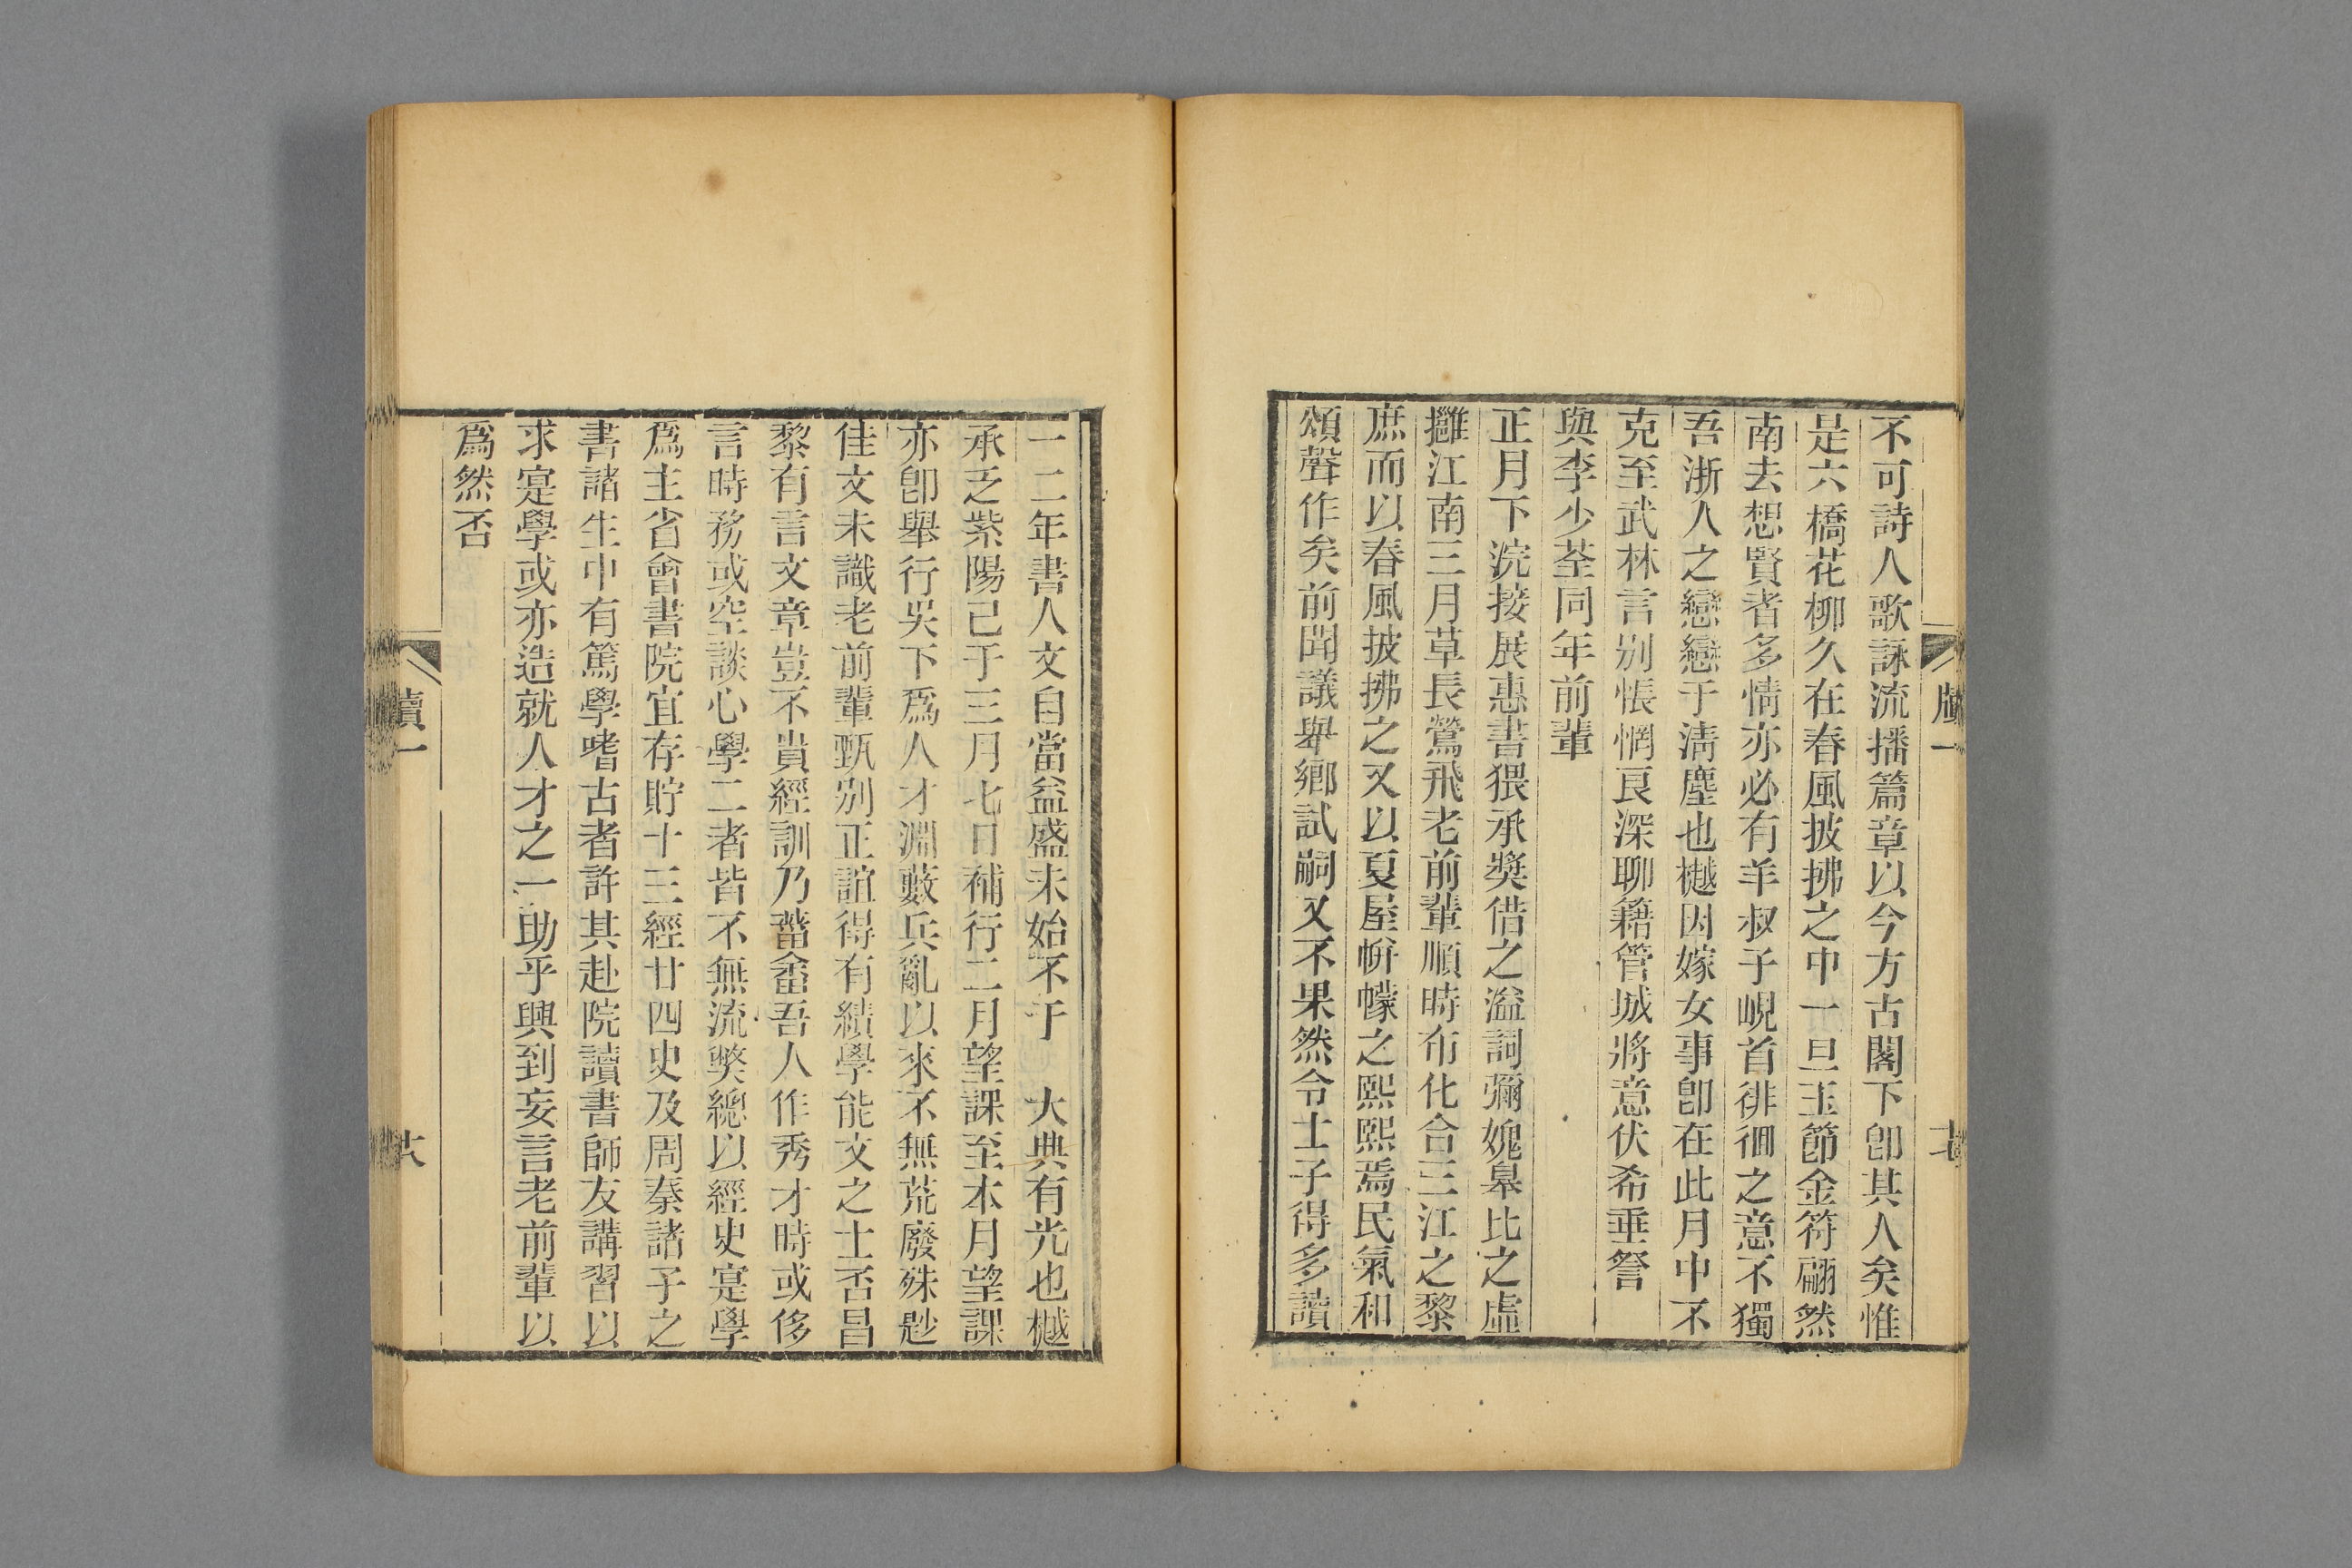 不可詩人歌詠流播篇章以今方古閣下卽其人矣惟
是六橋花柳久在春風披拂之中一旦玉節金符翩然
南去想賢者多情亦必有羊叔子峴首徘徊之意不獨
吾浙人之戀戀于清塵也樾因嫁女事卽在此月中不
克至武林言别悵惘良深聊藉管城將意伏希垂詧
與李少荃同年前輩
正月下浣接展惠書猥承獎借之溢詞彌媿皋比之虛
擁江南三月草長鶯飛老前輩順時布化合三江之黎
庶而以春風披拂之又以夏屋帡幪之熙熙焉民氣和
頌聲作矣前聞議舉鄉試嗣又不果然令士子得多讀
牘一
十七
一二年書人文自當益盛未始不于 大典有光也樾
承乏紫陽己于三月七日補行二月望課至本月望課
亦卽舉行吳下爲人才淵藪兵亂以來不無荒廢殊尟
佳文未識老前輩甄别正誼得有績學能文之士否昌
黎有言文章豈不貴經訓乃菑畬吾人作秀才時或侈
言時務或空談心學二者皆不無流弊總以經史寔學
爲主省會書院宜存貯十三經廿四史及周秦諸子之
書諸生中有篤學嗜古者許其赴院讀書師友講習以
求寔學或亦造就人才之一助乎興到妄言老前輩以
爲然否
牘一